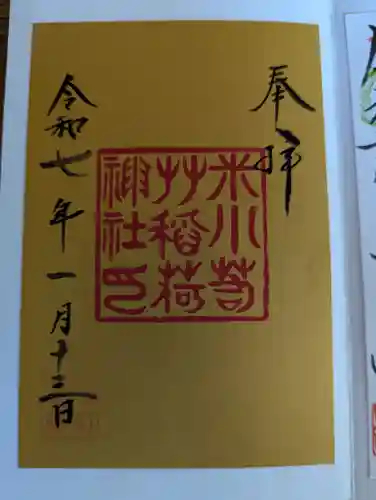 奉拝
米川
艸稲荷
神社印
令和七年一月十三日